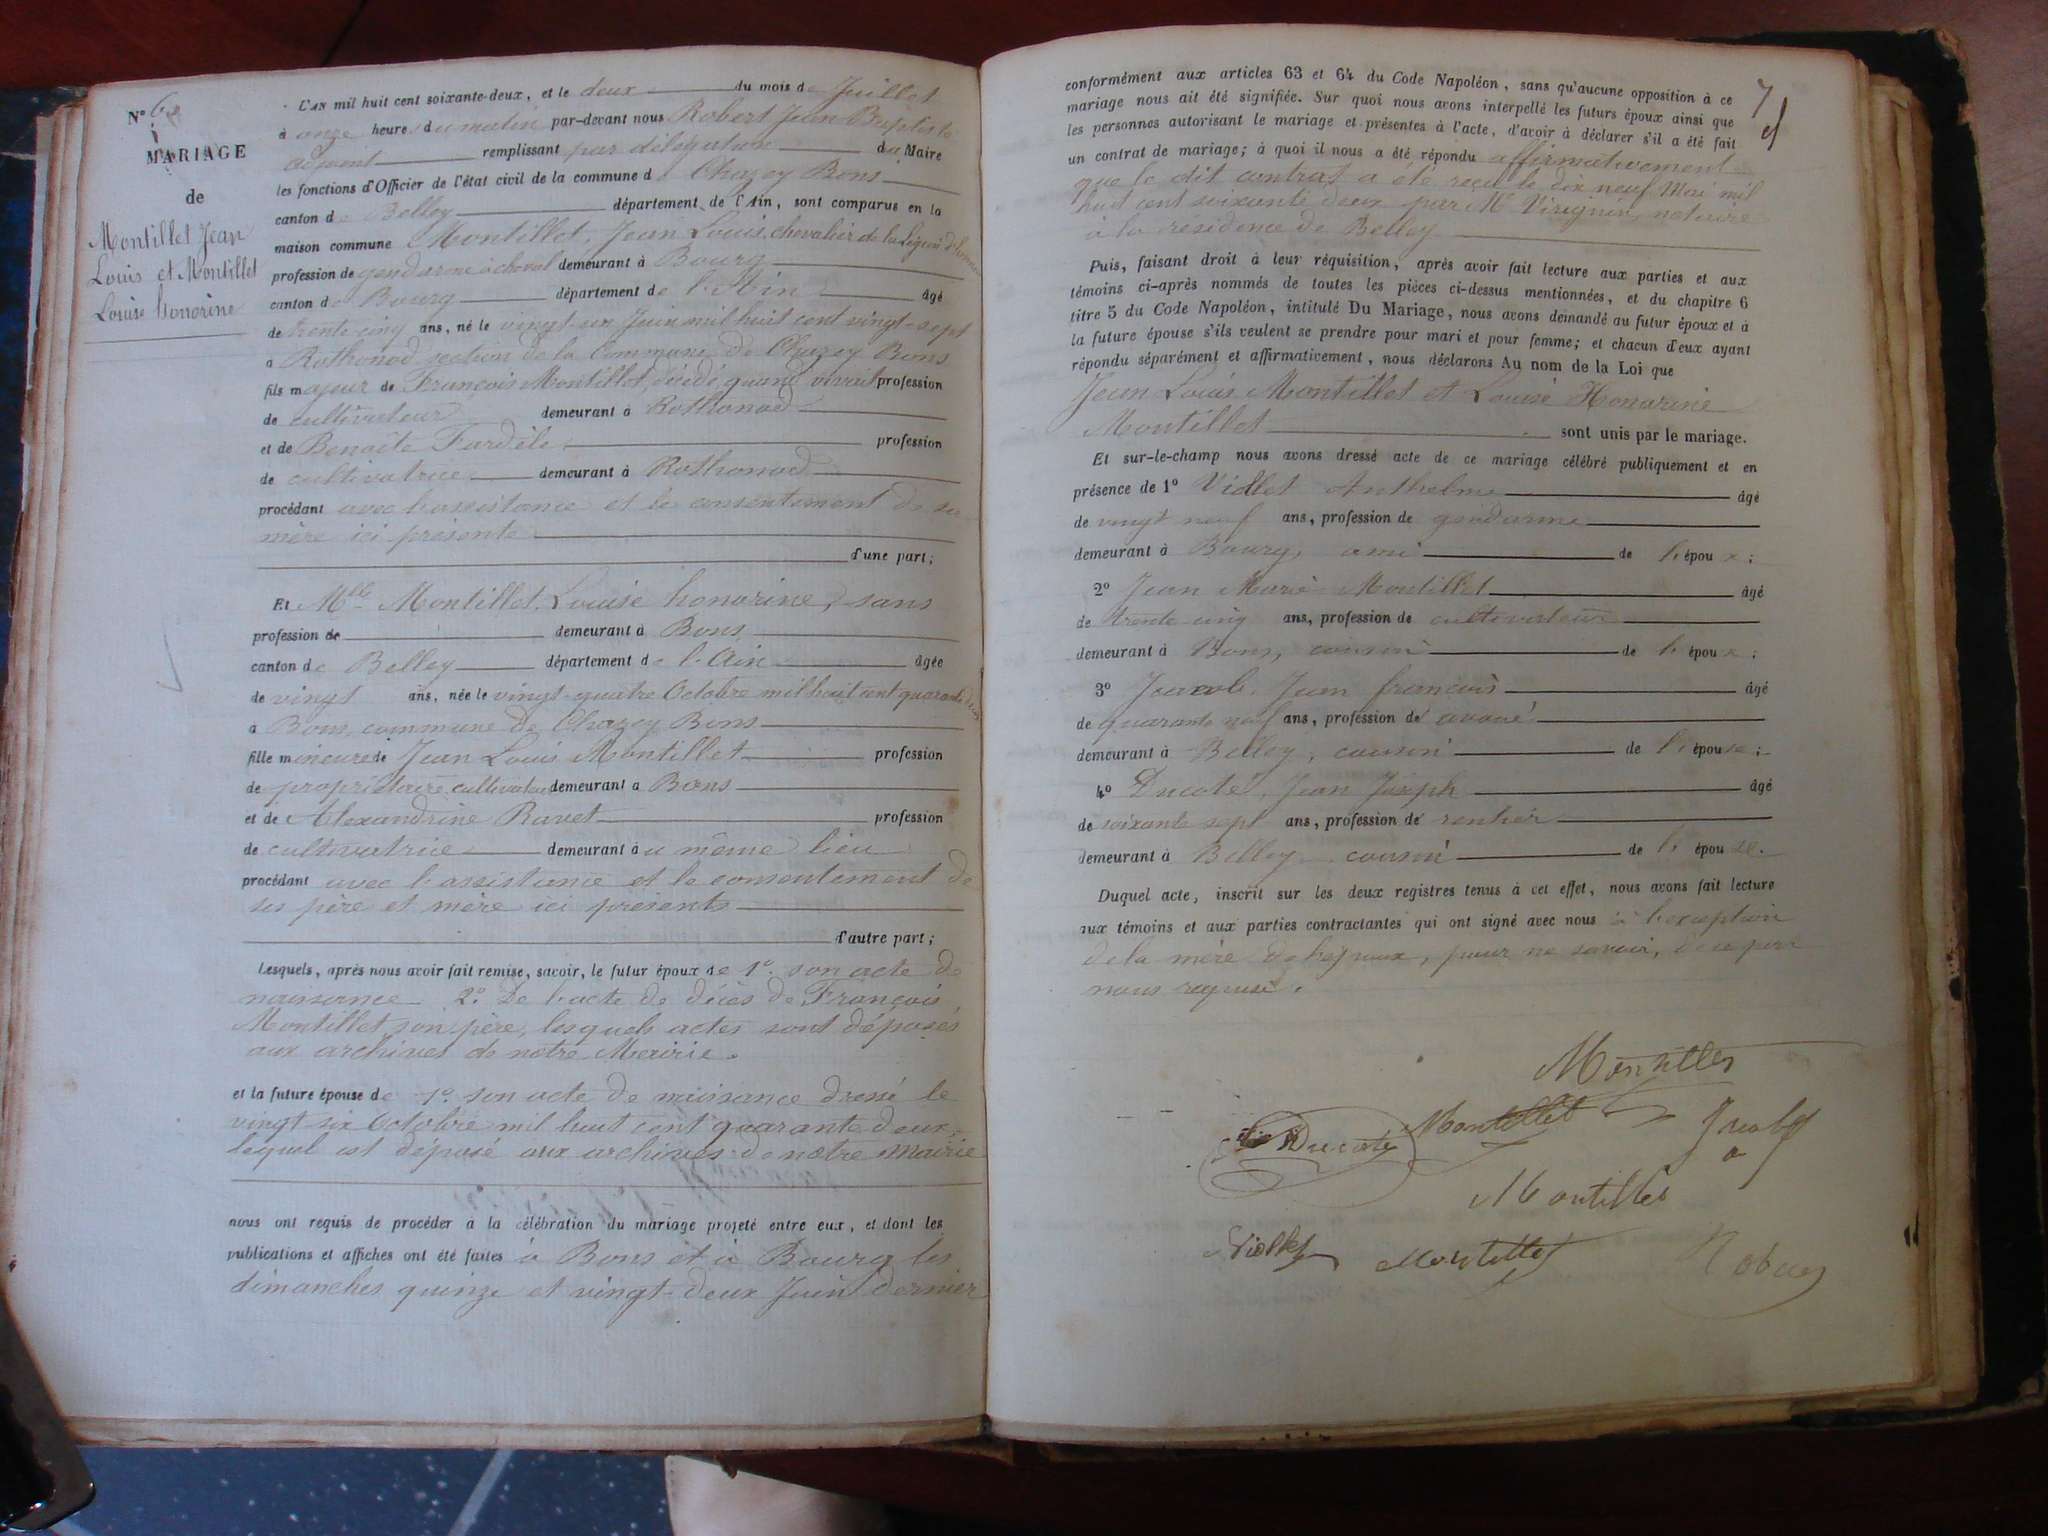 N° 6
MARIAGE
de
Montillet Jean
Louis et Montillet
Louise honorine
L'AN mil huit cent soixante-deux, et le deux du mois de Juillet
à onze heures du matin par-devant nous Robert Jean Baptiste
adjoint remplissant par délégation du Maire
les fonctions d'Officier de l'état civil de la commune de Chazey Bons
canton de Belley département de l'Ain, sont comparus en la
maison commune Montillet, Jean Louis, chevalier de la Légion d'honneur
profession de gendarme à cheval demeurant à Bourg
canton de Bourg département de l'Ain âgé
de trente cinq ans, né le vingt-un Juin mil huit cent vingt-sept
à Rothonod section de la Commune de Chazey Bons
fils majeur de François Montillet, décédé, quand vivait profession
de cultivateur demeurant à Rothonod
et de Benoîte Fardèle profession
de cultivatrice demeurant à Rothonod
procédant avec l'assistance et le consentement de sa
mère ici présente
d'une part;
Et Mlle Montillet, Louise honorine, sans
profession de demeurant à Bons
canton de Belley département de l'Ain âgée
de vingt ans, née le vingt-quatre Octobre mil huit cent quarante deux
à Bons, commune de Chazey Bons
fille mineure de Jean Louis Montillet profession
de propriétaire cultivateur demeurant à Bons
et de Alexandrine Ravet profession
de cultivatrice demeurant au même lieu
procédant avec l'assistance et le consentement de
ses père et mère ici présents
d'autre part;
Lesquels, après nous avoir fait remise, savoir, le futur époux de 1° son acte de
naissance 2° De l'acte de décès de François
Montillet son père, lesquels actes sont déposés
aux archives de notre Mairie.
et la future épouse de 1° son acte de naissance dressé le
vingt six Octobre mil huit cent quarante deux,
lequel est déposé aux archives de notre Mairie
nous ont requis de procéder à la célébration du mariage projeté entre eux, et dont les
publications et affiches ont été faites à Bons et à Bourg les
dimanches quinze et vingt-deux Juin dernier
7
conformément aux articles 63 et 64 du Code Napoléon, sans qu'aucune opposition à ce
mariage nous ait été signifiée. Sur quoi nous avons interpellé les futurs époux ainsi que
les personnes autorisant le mariage et présentes à l'acte, d'avoir à déclarer s'il a été fait
un contrat de mariage; à quoi il nous a été répondu affirmativement
que le dit contrat a été reçu le dix neuf Mai mil
huit cent soixante deux par Me Virignin, notaire
à la résidence de Belley
Puis, faisant droit à leur réquisition, après avoir fait lecture aux parties et aux
témoins ci-après nommés de toutes les pièces ci-dessus mentionnées, et du chapitre 6
titre 5 du Code Napoléon, intitulé Du Mariage, nous avons demandé au futur époux et à
la future épouse s'ils veulent se prendre pour mari et pour femme; et chacun d'eux ayant
répondu séparément et affirmativement, nous déclarons Au nom de la Loi que
Jean Louis Montillet et Louise Honorine
Montillet sont unis par le mariage.
Et sur-le-champ nous avons dressé acte de ce mariage célébré publiquement et en
présence de 1° Viollet Anthelme âgé
de vingt neuf ans, profession de gendarme
demeurant à Bourg, ami de l'époux;
2° Jean Marie Montillet âgé
de trente cinq ans, profession de cultivateur
demeurant à Bons, cousin de l'époux;
3° Jacob, Jean françois âgé
de quarante neuf ans, profession de avoué
demeurant à Belley, cousin de l'épouse;
4° Ducoté, Jean Joseph âgé
de soixante sept ans, profession de rentier
demeurant à Belley cousin de l'épouse.
Duquel acte, inscrit sur les deux registres tenus à cet effet, nous avons fait lecture
aux témoins et aux parties contractantes qui ont signé avec nous à l'exception
de la mère de l'époux, pour ne savoir, de ce par
nous requise.
Montillet
Ducoté Montillet Jacob
Montillet
Viollet Montillet Robert